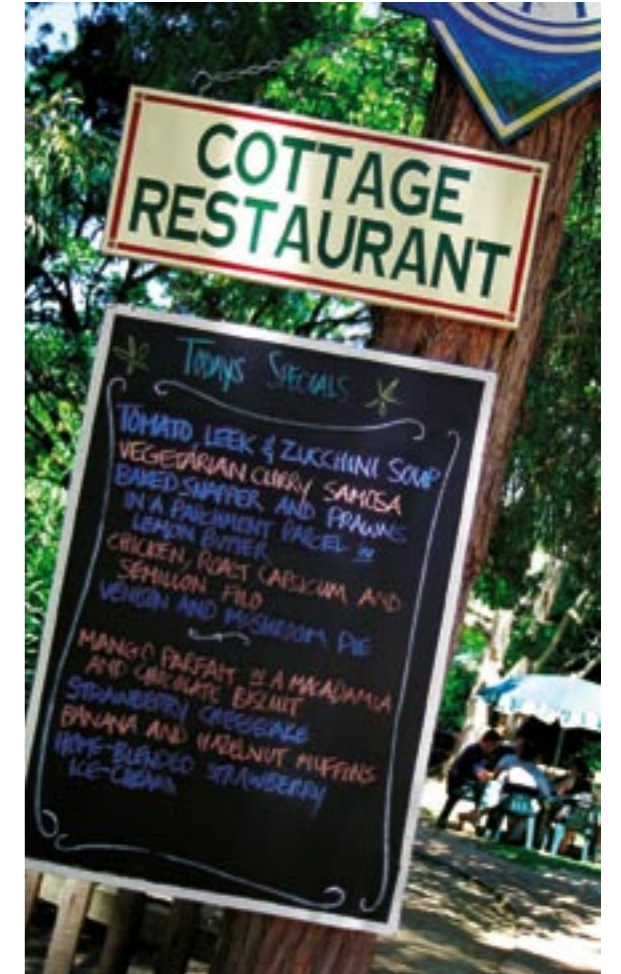 COTTAGE
RESTAURANT
TODAYS SPECIALS
TOMATO, LEEK & ZUCCHINI SOUP
VEGETARIAN CURRY SAMOSA
BAKED SNAPPER AND PRAWNS
IN A PARCHMENT PARCEL
LEMON BUTTER
CHICKEN, ROAST CAPSICUM AND
SEMILLON FILO
VENISON AND MUSHROOM PIE
MANGO PARFAIT A MACADAMIA
AND CHOCOLATE BISCUIT
STRAWBERRY CHEESECAKE
BANANA AND HAZELNUT MUFFINS
HOME-BLENDED STRAWBERRY
ICE-CREAM